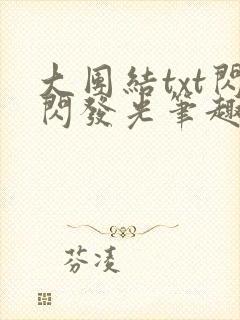 大團結txt閃
閃發光筆趣
芬凌